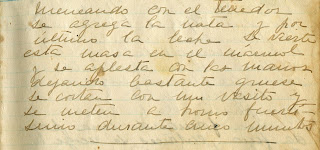 meneando con el tenedor
se agrega la nata y por
ultimo la leche se vierte
esta masa en el marmol
y se aplasta con las manos
dejandro bastante gruesa
se cortan con un vasito y
se meten a horno fuerte
sirvio durante cinco minutos